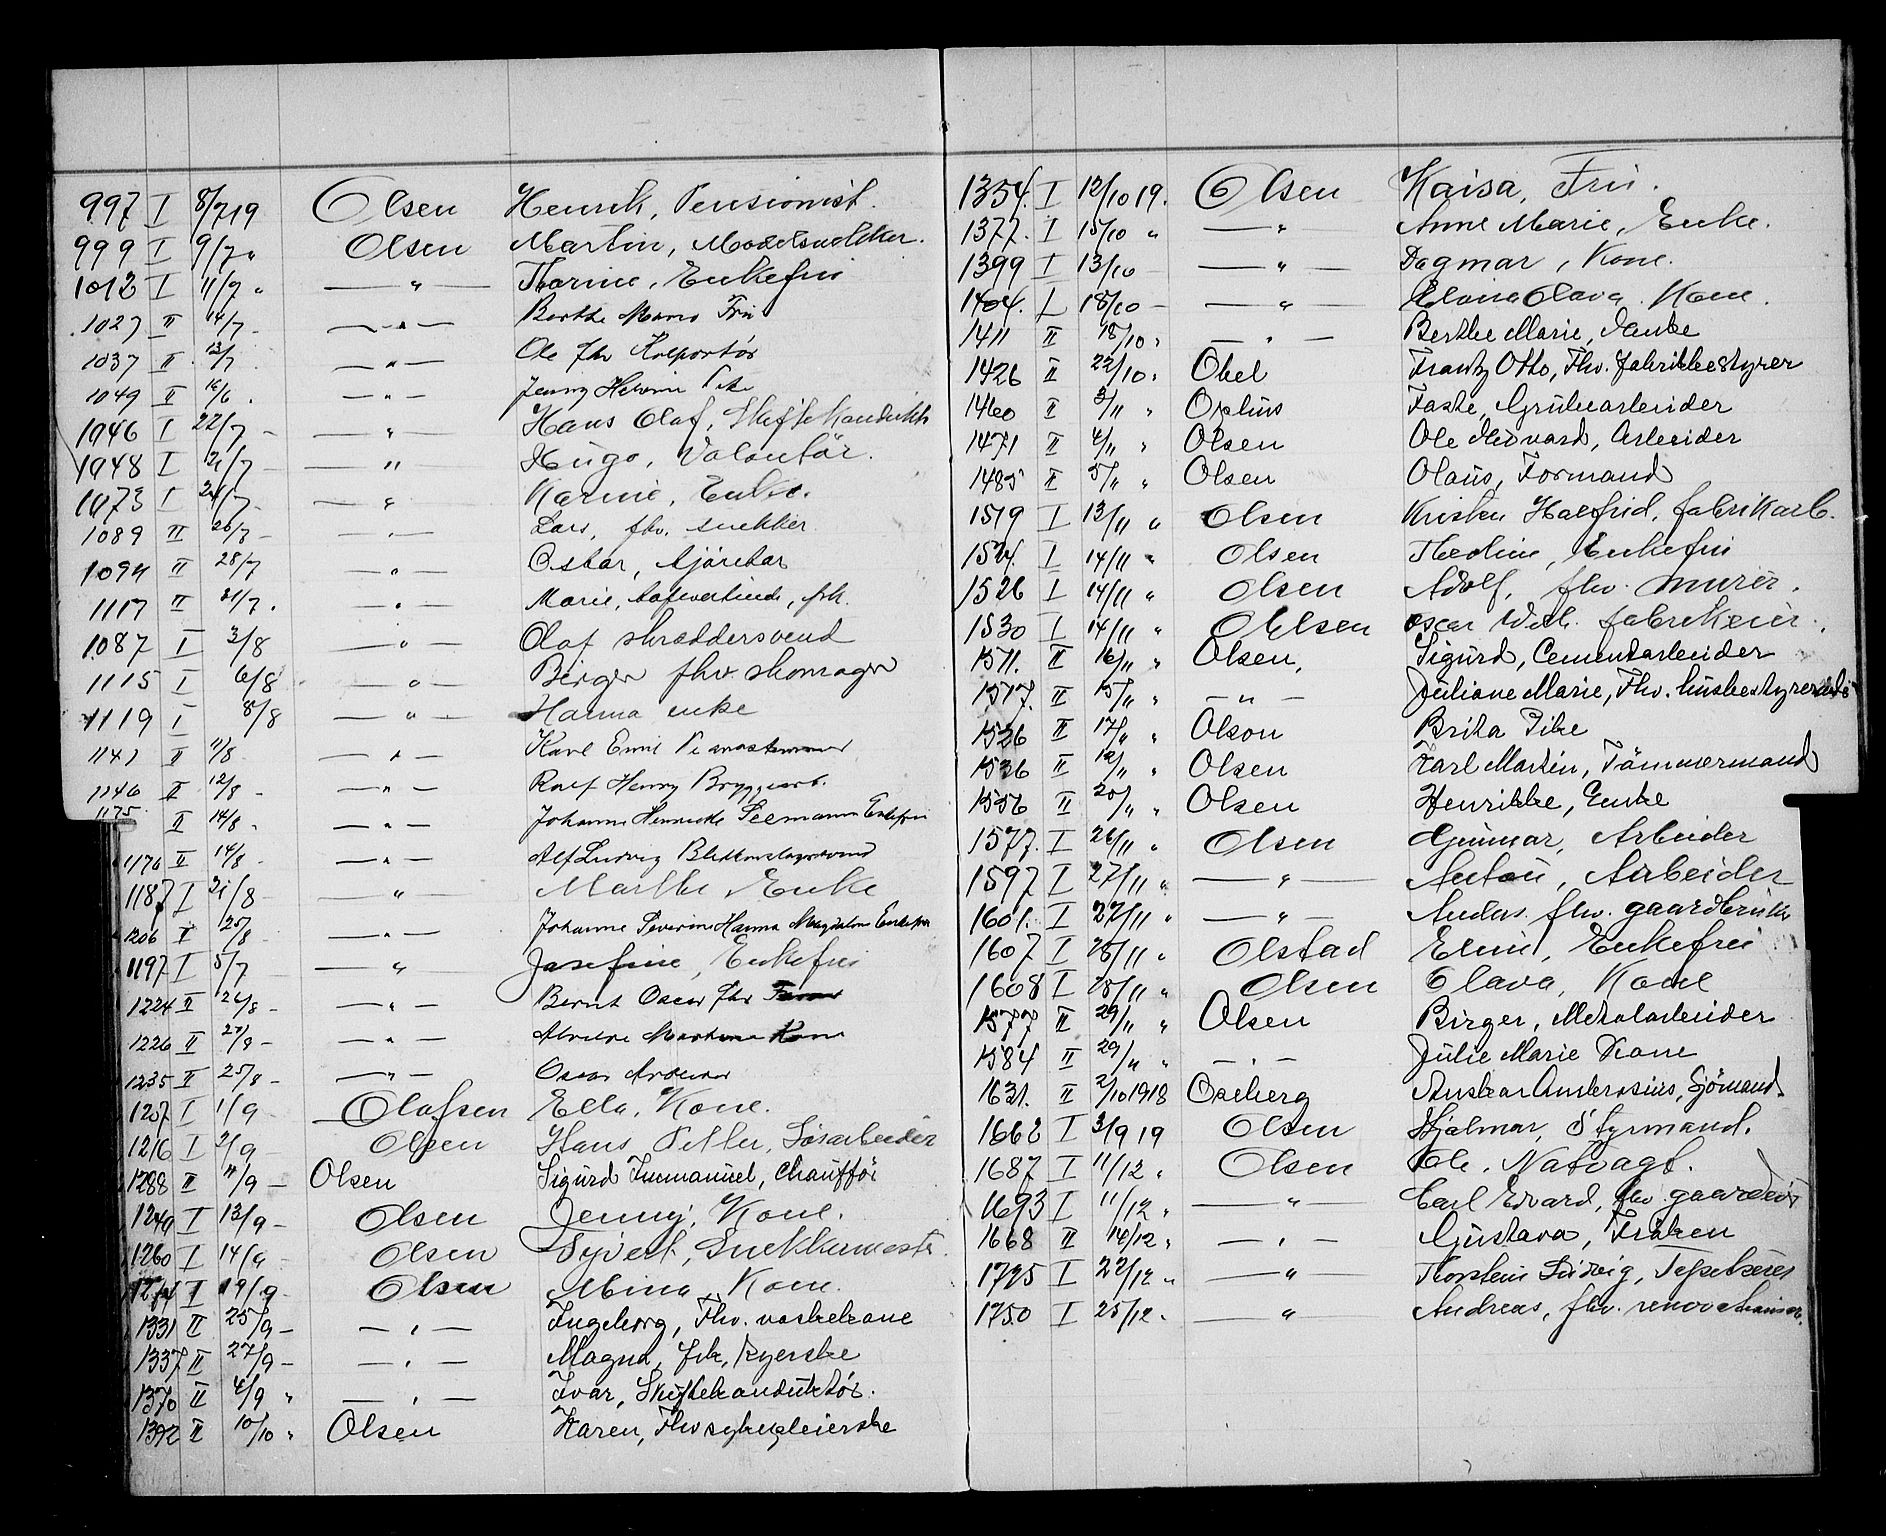 997 I 8/7 19 Olsen Henrik, Pensionist.
999 I 9/7 " Olsen Martin, Modelsnekker.
1012 I 11/7 " —"— Thorine, Enkefru
1027 II 14/7 - —"— Berthe Marie Fru
1037 II 13/7 —"— Ole fhv Kolportör
1049 II 16/6 . —"— Jenny Hermine Pike
1046 I 22/7 - —"— Hans Olaf, Skiftekonduktör
1048 I 21/7 - —"— Hugo, Volontör.
1073 I 24/7 - —"— Karine, Enke.
1089 II 26/7 - —"— Lars, fhv. snekker
1094 II 28/7 —"— Oskar,
1117 II 31/7 . —"— Marie, frk.
1087 I 3/8 —"— Olaf skræddersvend
1115 I 6/8 —"— Birger fhv. skomager
1119 I 8/8 —"— Hanna enke
1141 II 11/8 —"— Karl Emil
1146 II 12/8 - —"— Rolf Henry Bryggearb.
1175 II 14/8 - —"— Johanne Henricke Seemann Enkefru
1176 II 14/8 - —"— Alf Ludvig
1187 I 21/8 - —"— Marthe Enke
1206 II 25/8 - —"— Johanne Severine Hanna Magdalene Enkefru
1197 I 5/7 —"— Josefine, Enkefru
1224 II 26/8 - —"— Bernt Oscar fhv
1226 II 27/8 - —"— Martine Kone
1235 II 25/8 - —"— Oscar
1207 I 1/9 - Olafsen Ella, Kone.
1216 I 2/9 - Olsen Hans Petter, Lösarbeider
1288 II 11/9 - Olsen Sigurd Immanuel, Chaufför
1249 I 13/9 - Olsen Jenny, Kone.
1260 I 14/9 - Olsen Syvert, Snekkermester.
1274 I 19/9 - Olsen Mina, Kone.
1331 II 25/9 - —"— Ingeborg, Fhv. vaskekone
1337 II 27/9 - —"— Magna, frk,
1370 II 4/9 " —"— Ivar, Skiftekonduktör.
1392 II 10/10 " Olsen Karen, Fhv sykepleierske
1354. I 12/10 19. Olsen Kaisa, Fru.
1377. I 15/10 " —"— Anne Marie, Enke.
1399 I 13/10 —"— Dagmar, Kone.
1404. I 18/10 - —"— Olava. Kone.
1411 II 18/10 " —"— Berthe Marie, Enke
1426 II 22/10. Obel Frantz Otto, Fhv. fabrikbestyrer
1460 II 3/11 " Ophus Faste, Grubearbeider
1471 II 4/11 " Olsen Ole Edvard, Arbeider
1485 II 5/11 " Olsen Olaus, Formand
1519 I 13/11 " Olsen Kristen Halfrid, fabrikarb.
1524. I 14/11 " Olsen Thedine, Enkefru
1526 I 14/11 " Olsen Adolf, fhv. murer.
1530 I 14/11 " Ohlsen oscar Wilh. fabrikeier.
1511. II 16/11 " Olsen, Sigurd, Cementarbeider
1517. II 15/11 " —"— Juliane Marie, Fhv. husbestyrerinde
1526 II 17/11 " Olson Brita Pike
1536 II 19/11 " Olsen Karl Martin, Tömmermand
1556 II 20/11 " Olsen Henrikke, Enke
1577. I 26/11 " Olsen Gunnar, Arbeider
1597 I 27/11 " —"— Anton, Arbeider
1601. I 27/11 " —"— Andas. fhv. gaardbruk
1607 I 28/11 " Olstad Eline, Enkefru
1608 I 28/11 " Olsen Olava, Kone
1577 II 29/11 " Olsen Birger, Metalarbeider
1584 II 29/11 " —"— Julie Marie Kone
1631. II 2/10 1918 Oseberg Anskar Ambrosius, Sjömand.
1662 I 3/9 19 Olsen Hjalmar, Styrmand.
1687 I 11/12 " Olsen Ole. Natvagt.
1693 I 11/12 " —"— Carl Edvard, fhv. gaardeier
1668 II 14/12 " —"— Gustava, Fröken
1725 I 22/12 " —"— Thorstein Ludvig, Tapetserer
1750 I 25/12 " —"— Andreas, fhv.